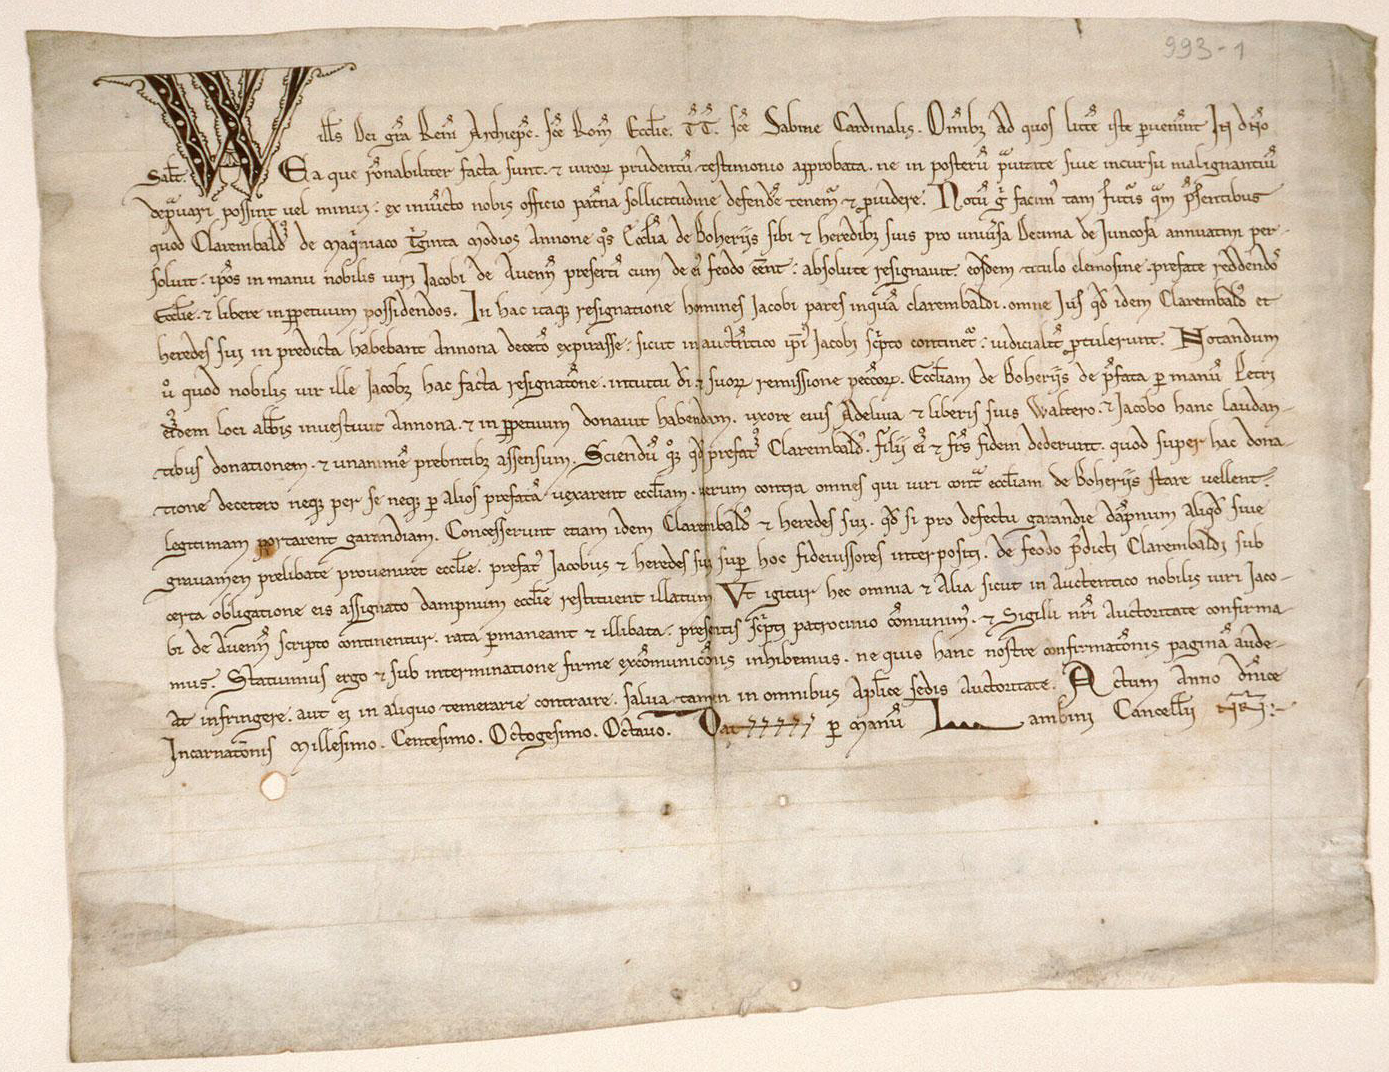 993-1
Wills Dei gra Rem Archiepc. sce Rom Ecclie. TT. sce Sabine Cardinalis. Omibz Ad quos littere iste pervenint In dno
Salt. Ea que ronabiliter facta sunt. et virorum prudentu testimonio approbata. ne in posteru pravitate sive incursu malignantiu
depravari possint vel minui: ex iniucto nobis officio patna sollicitudine defende tenem et pvidere. Notu g facim tam futis qm psentibus
quod Clarembald de Maqniaco Tginta Modios Annone qs Ecclia de Boheriis sibi et heredibz suis pro universa Decima de Juncosa annuatim per-
solvit. ipsos in manu nobilis viri Jacobi de Avenn presertim cum de ei feodo eent: absolute resignavit. eosdem titulo elemosine prefate reddendo
Ecclie. et libere in ppetuum possidendos. In hac itaqz resignatione homines Jacobi pares inquam clarembaldi. omne Jus qd idem Clarembald et
heredes sui in predicta habebant Annona decetero expirasse: sicut in auctentico ipi Jacobi scpto continet: iudicialit ptulerunt. Notandum
v quod nobilis vir ille Jacobz hac facta resignatone. intuitu di et suorum remissione peccorum. Eccliam de Boheriis de pfata p manu Petri
eisdem loci abbis investivit Annona. et in ppetuum donavit habendam. uxore eius Adeluia et liberis suis Waltero. et Jacobo hanc laudan-
tibus donationem. et unanime prebentibz assensum. Sciendu qz qd prefat Clarembald. filii ei et frs fidem dederunt. quod super hac dona-
tione decetero neqz per se neqz p alios prefata vexarent eccliam. verum contra omnes qui viri cont eccliam de Boheriis stare vellent.
legitimam portarent garandiam. Concesserunt etiam idem Clarembald et heredes sui. qd si pro defectu garandie dampnum aliqd sive
gravamen prelibate proveniret ecclie. prefat Jacobus et heredes sui sup hoc fideiussores interpositi. de feodo pdicti Clarembaldi sub
certa obligatione eis assignato dampnum ecclie restituent illatum Ut igitur hec omnia et Alia sicut in auctentico nobilis viri Jaco-
bi de Avenn scripto continentur. rata pmaneant et illibata. presentis scpti patrocinio comunim. et Sigilli nri Auctoritate confirma-
mus. Statuimus ergo et sub interminatione firme excomuniconis inhibemus. ne quis hanc nostre confirmatonis pagina aude-
at infringere. aut ei in aliquo temerarie contraire. salva tamen in omnibus Aplice sedis Auctoritate. Actum Anno dnice
Incarnatonis Millesimo. Centesimo. Octogesimo. Octavo. Dat p manu Lambini Cancellii nri: